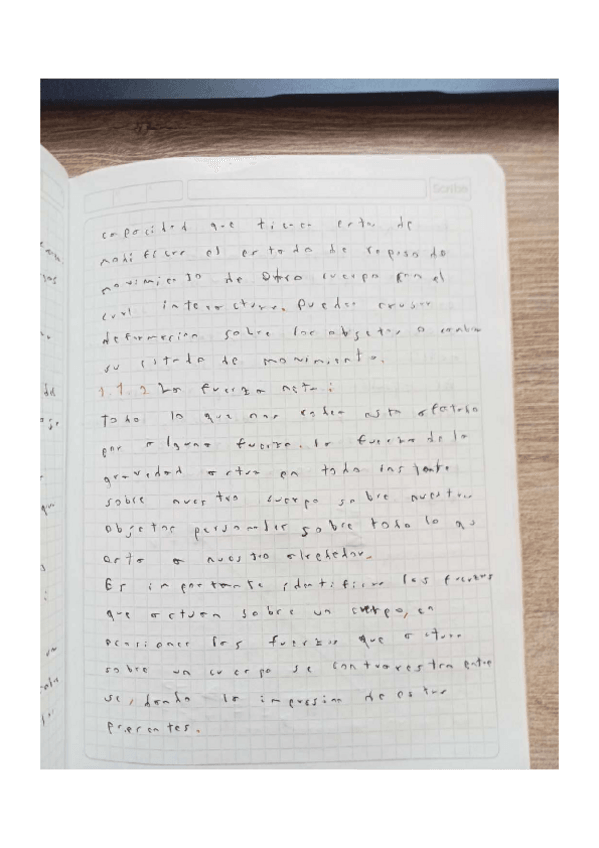 Scribe
capacidad que tienen estas de
modificar el estado de reposo do
movimiento de Otro cuerpo con el
cual interactura. pueden causar
deformacion sobre los objetos o cambiar
su estado de movimiento.
1.1.2 La fuerza neta:
todo lo que nos rodea esta afectado
por alguna fuerza. la fuerza de la
gravedad actua en todo instante
sobre nuestro cuerpo sobre nuestros
objetos personales sobre todo lo que
esta a nuestro alrededor.
Es importante identificar las fuerzas
que actuan sobre un cuerpo, en
ocasiones las fuerzas que actuan
sobre un cuerpo se contrarestra entre
si, dando la impresion de estar
presentes.